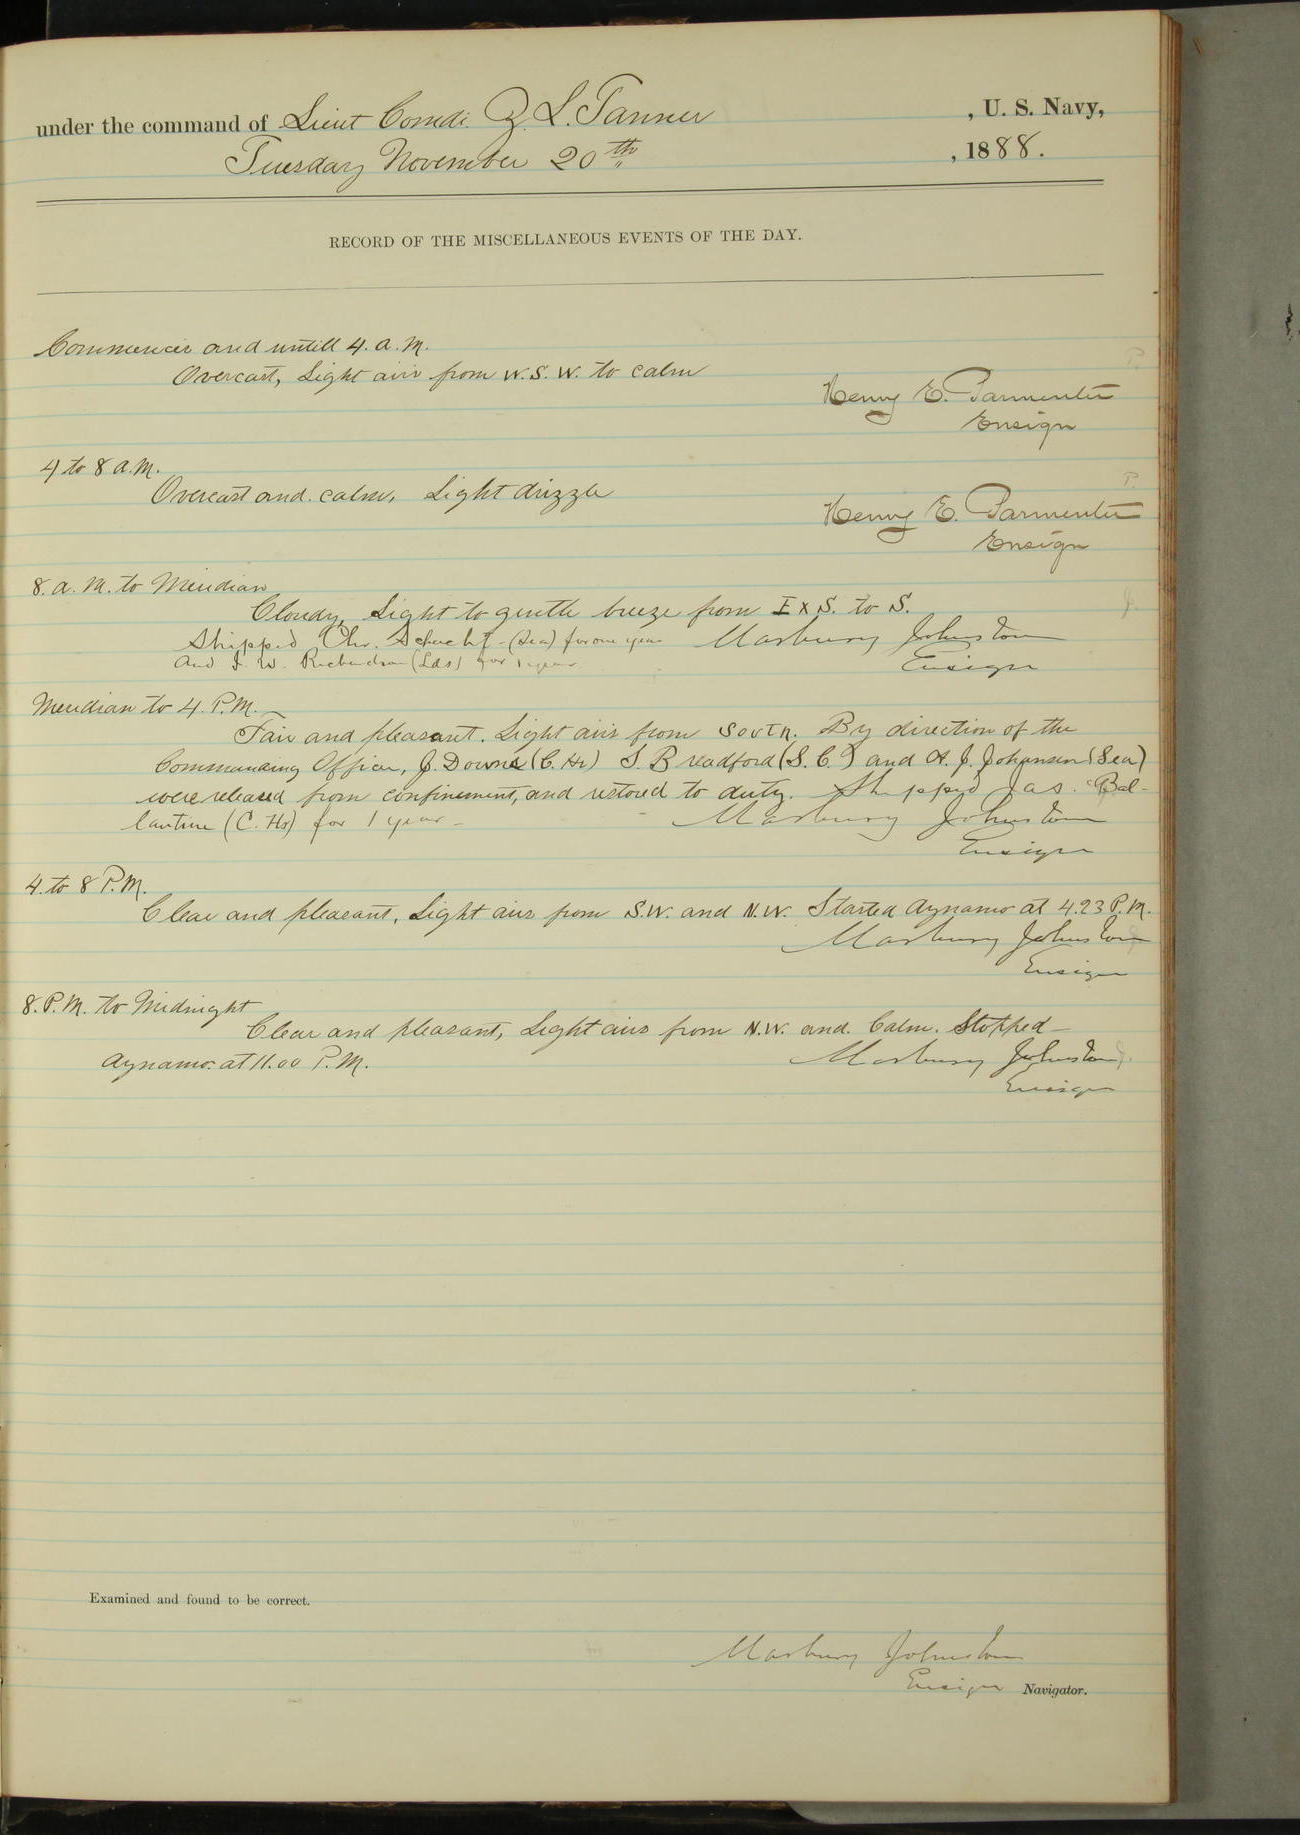 under the command of Lieut Comdr. Z. L. Tanner, U. S. Navy,
Tuesday November 20th, 1888.
RECORD OF THE MISCELLANEOUS EVENTS OF THE DAY.
Commences and untill 4. a. m.
Overcast, Light airs from W. S. W. to calm
Henry E. Parmenter
Ensign
4 to 8 A.M.
Overcast and calm, Light drizzle
Henry E. Parmenter
Ensign
8. a. m. to Meridian
Cloudy, Light to gentle breeze from E x S. to S.
Shipped Chr. Schucht - (Sea) for one year
and J. W. Richardson (Lds) for 1 year
Marbury Johnston
Ensign
Meridian to 4. P.M.
Fair and pleasant. Light airs from South. By direction of the
Commanding Officer, J. Downs (C. Hr) S. Bradford (S. C.) and A. J. Johansen (Sea)
were released from confinement, and restored to duty. Shipped Jas. Bal-
lantine (C. Hr) for 1 year -
Marbury Johnston
Ensign
4. to 8 P.M.
Clear and pleasant, Light airs from S.W. and N.W. Started dynamo at 4.23 P.M.
Marbury Johnston
Ensign
8. P.M. to Midnight
Clear and pleasant, Light airs from N.W. and Calm. Stopped
dynamo at 11.00 P.M.
Marbury Johnston
Ensign
Examined and found to be correct.
Marbury Johnston
Ensign Navigator.